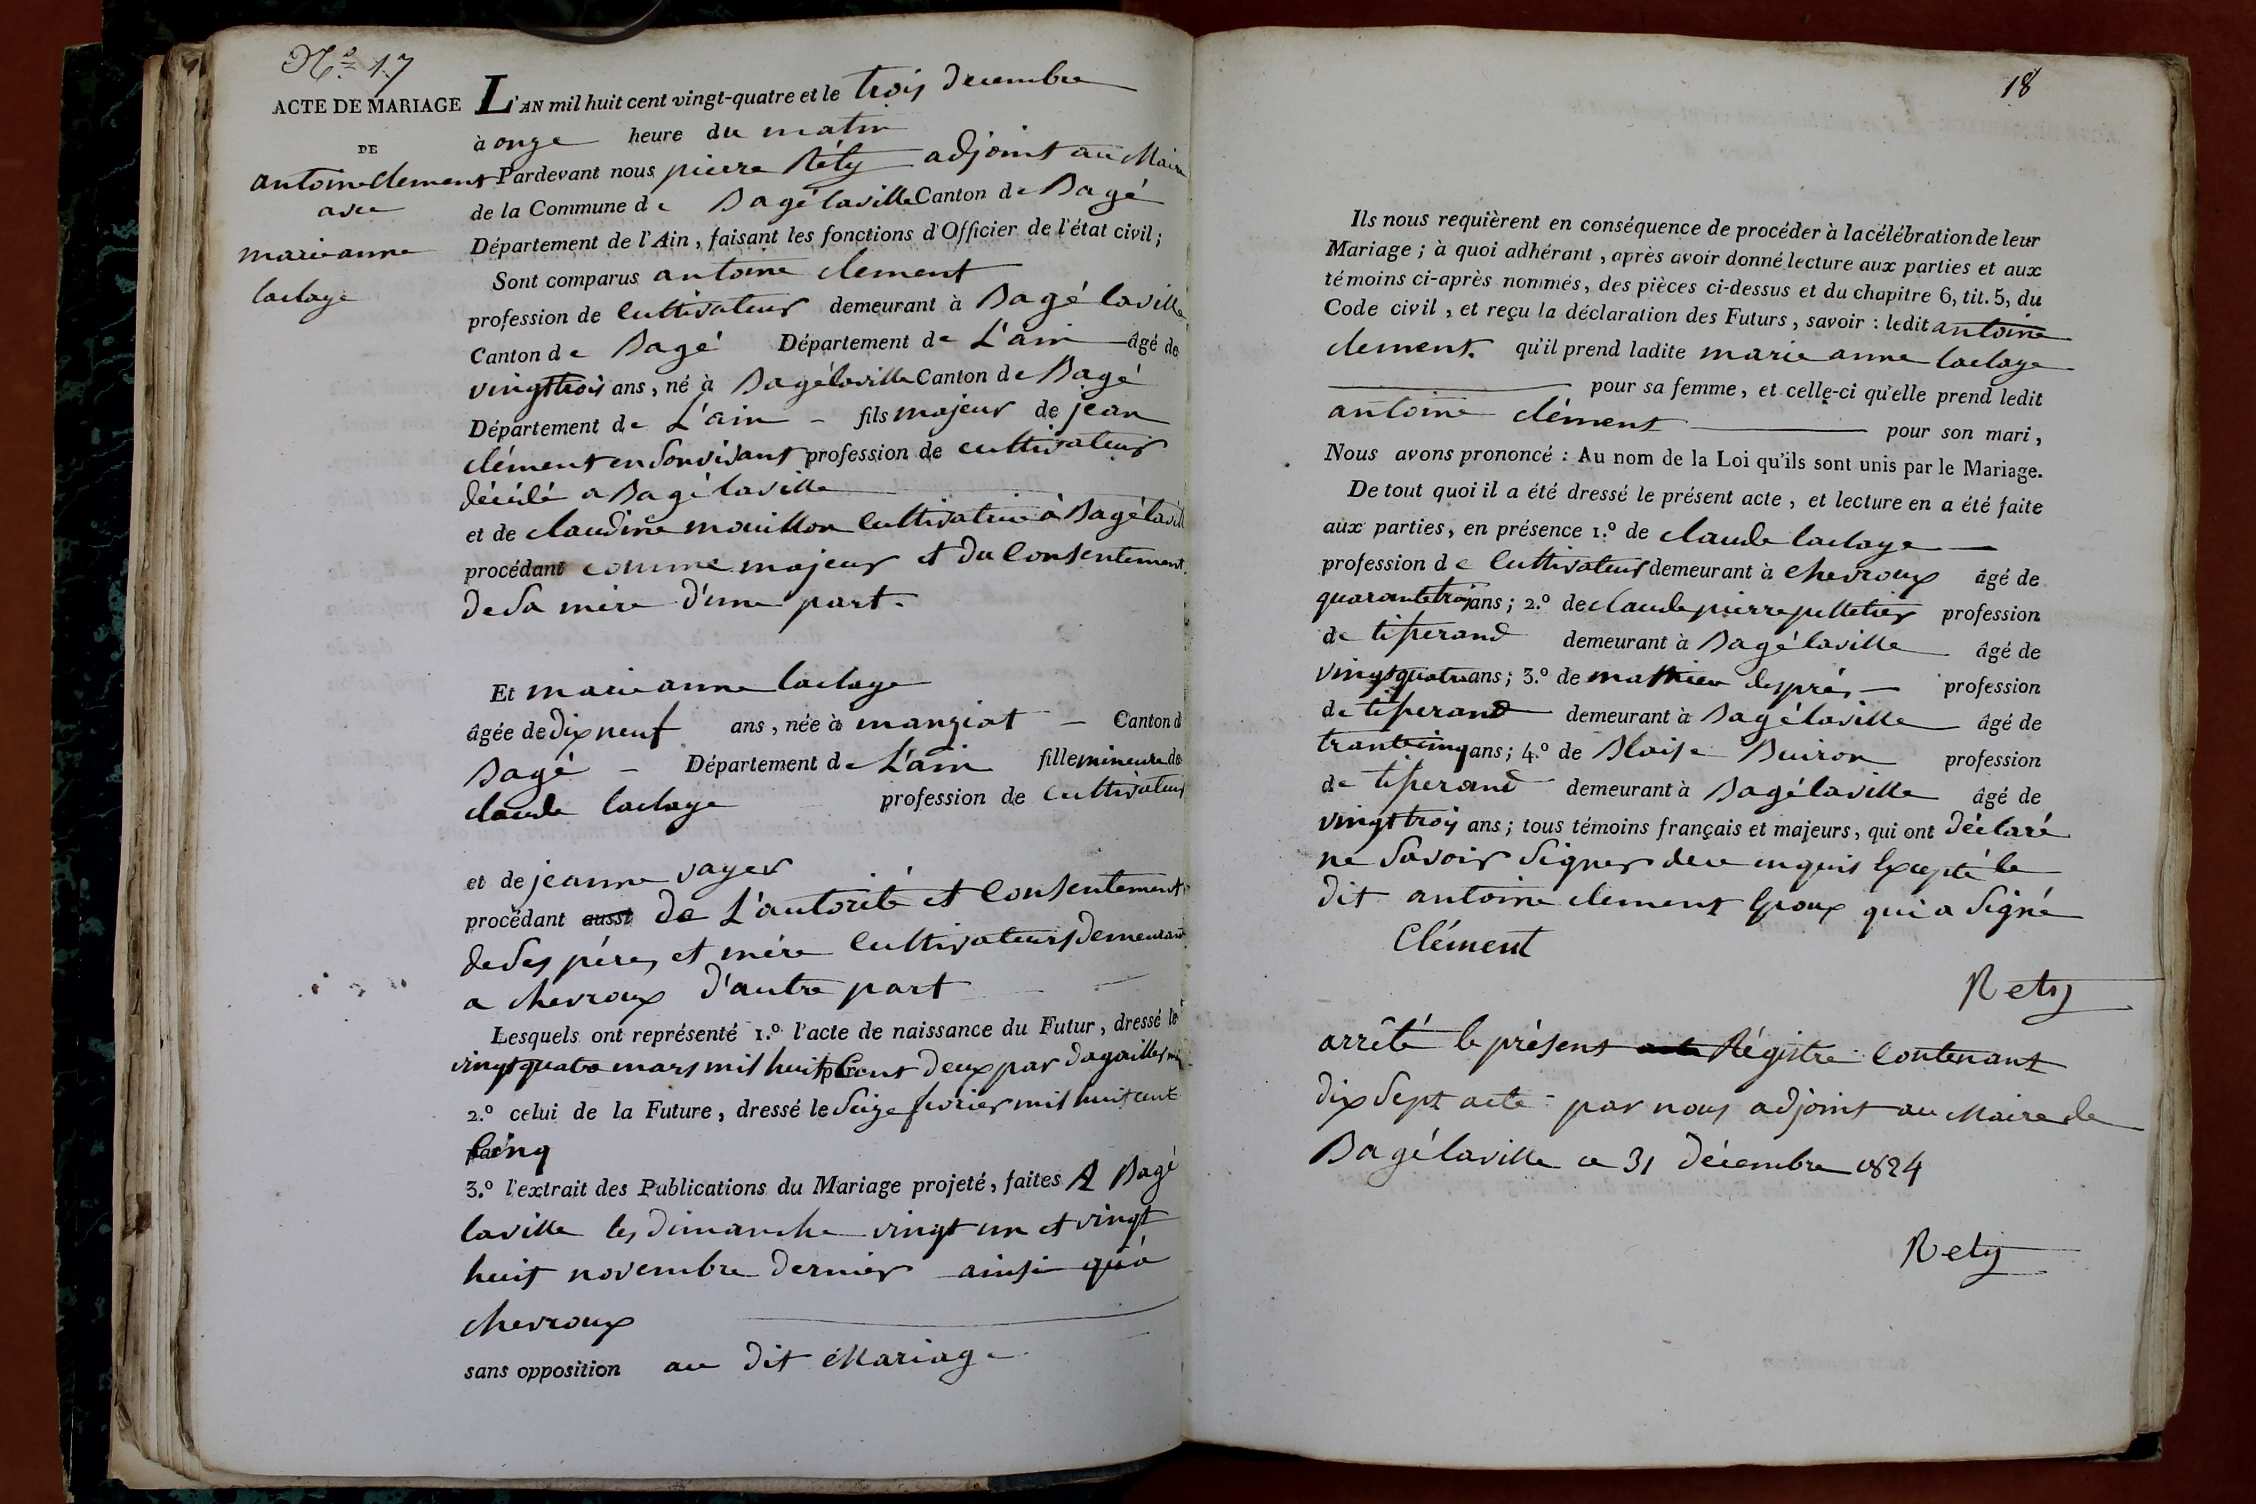 N.º 17
ACTE DE MARIAGE
DE
antoine clement
avec
marie anne
laclaye
L'AN mil huit cent vingt-quatre et le trois decembre
à onze heure du matin
Pardevant nous pierre Réty adjoint au Maire
de la Commune de Bagé laville Canton de Bagé
Département de l'Ain, faisant les fonctions d'Officier de l'état civil;
Sont comparus antoine clement
profession de cultivateur demeurant à Bagé laville
Canton de Bagé Département de L'ain âgé de
vingt trois ans, né à Bagé laville Canton de Bagé
Département de L'ain - fils majeur de jean
clément en son vivant profession de cultivateur
décédé a Bagé laville
et de claudine mouillon cultivatrice à Bagé lavill
procédant comme majeur et du consentement
de sa mère d'une part.
Et marie anne laclaye
âgée de dix neuf ans, née à manziat - Canton d
Bagé - Département de L'ain fille mineure de
claude laclaye profession de cultivateur
et de jeanne vayer
procédant aussi de L'autorité et consentement
de ses père, et mère cultivateurs demeurant
a chevroux d'autre part
Lesquels ont représenté 1.º l'acte de naissance du Futur, dressé le
vingt quatre mars mil huit cent deux par dagaillier
2.º celui de la Future, dressé le seize fevrier mil huit cent
cinq
3.º l'extrait des Publications du Mariage projeté, faites A Bagé
laville les dimanche vingt un et vingt
huit novembre dernier ainsi qu'à
chevroux
sans opposition au dit Mariage
18
Ils nous requièrent en conséquence de procéder à la célébration de leur
Mariage; à quoi adhérant, après avoir donné lecture aux parties et aux
témoins ci-après nommés, des pièces ci-dessus et du chapitre 6, tit. 5, du
Code civil, et reçu la déclaration des Futurs, savoir: ledit antoine
clement. qu'il prend ladite marie anne laclaye
pour sa femme, et celle-ci qu'elle prend ledit
antoine clément pour son mari,
Nous avons prononcé: Au nom de la Loi qu'ils sont unis par le Mariage.
De tout quoi il a été dressé le présent acte, et lecture en a été faite
aux parties, en présence 1.º de claude laclaye
profession de cultivateur demeurant à chevroux âgé de
quarante trois ans; 2.º de claude pierre pelletier profession
de tisserand demeurant à Bagé laville âgé de
vingt quatre ans; 3.º de mathieu després profession
de tisserand demeurant à Bagé laville âgé de
trante cinq ans; 4.º de Blaise Buiron profession
de tisserand demeurant à Bagé laville âgé de
vingt trois ans; tous témoins français et majeurs, qui ont déclaré
ne savoir signer de ce enquis Excepté le
dit antoine clement Epoux qui a signé
Clément
Rety
arrêté le présent acte Régistre contenant
dix sept acte par nous adjoint au Maire de
Bagé laville ce 31 décembre 1824
Rety